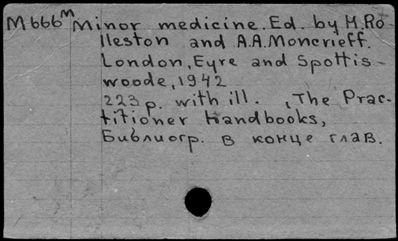 M666ᵐ Minor medicine. Ed. by H. Ro-
lleston and A.A. Moncrieff.
London, Eyre and Spottis-
woode, 1942
223 p. with ill. , The Prac-
titioner Handbooks,
Библиогр. в конце глав.